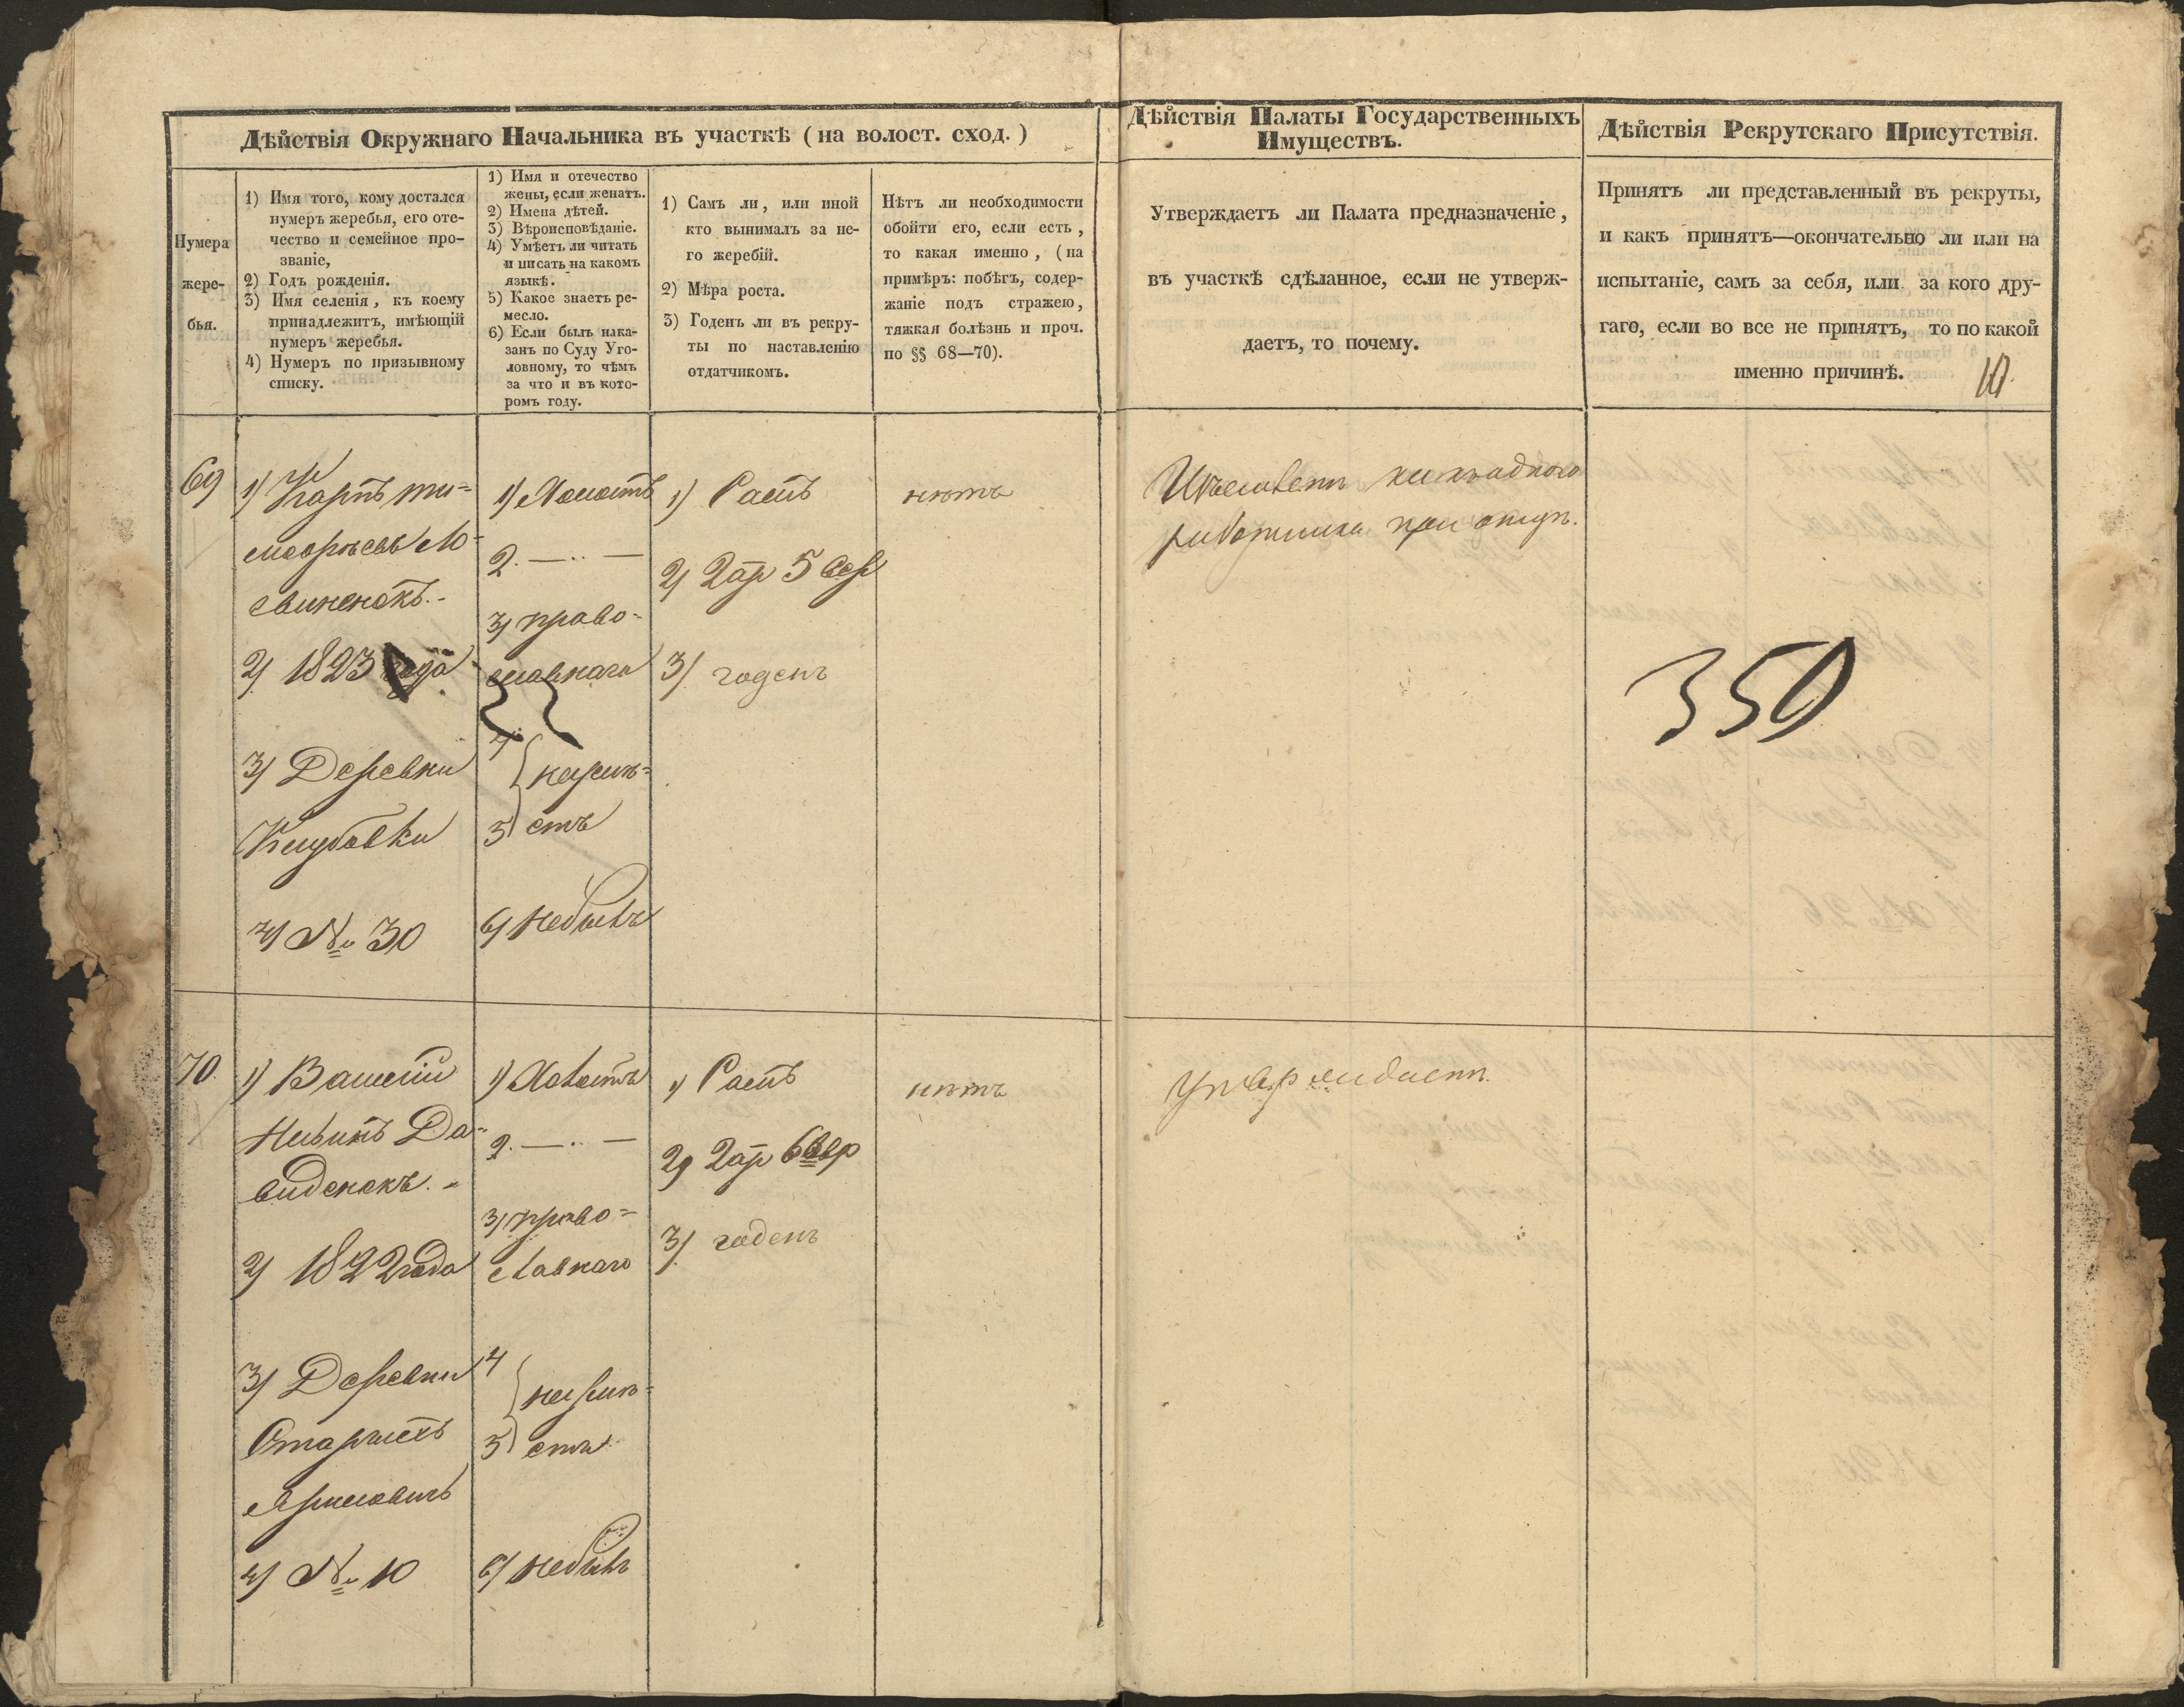 Дѣйствія Окружнаго Начальника въ участкѣ ( на волост. сход. )
Дѣйствія Палаты Государственныхъ
Имуществъ.
Дѣйствія Рекрутскаго Присутствія.
Нумера
жере-
бья.
1) Имя того, кому достался
нумеръ жеребья, его оте-
чество и семейное про-
званіе,
2) Годъ рожденія.
3) Имя селенія, къ коему
принадлежитъ, имѣющій
нумеръ жеребья.
4) Нумеръ по призывному
списку.
1) Имя и отечество
жены, если женатъ.
2) Имена дѣтей.
3) Вѣроисповѣданіе.
4) Умѣетъ ли читать
и писать на какомъ
языкѣ.
5) Какое знаетъ ре-
месло.
6) Если былъ нака-
занъ по Суду Уго-
ловному, то чѣмъ
за что и въ кото-
ромъ году.
1) Самъ ли, или иной
кто вынималъ за не-
го жеребій.
2) Мѣра роста.
3) Годенъ ли въ рекру-
ты по наставленію
отдатчикомъ.
Нѣтъ ли необходимости
обойти его, если есть,
то какая именно, (на
примѣръ: побѣгъ, содер-
жаніе подъ стражею,
тяжкая болѣзнь и проч.
по §§ 68—70).
Утверждаетъ ли Палата предназначеніе,
въ участкѣ сдѣланное, если не утверж-
даетъ, то почему.
Принятъ ли представленный въ рекруты,
и какъ принятъ—окончательно ли или на
испытаніе, самъ за себя, или за кого дру-
гаго, если во все не принятъ, то по какой
именно причинѣ.
10.
69
1) Карпъ Ти=
2) 1823 года
3) Деревни
4) № 30
1) Холостъ
2. — .. —
3) право=
славнаго
4
неумѣ=
5 етъ
6) небылъ
1)
2) 2 ар 5 вер
3) годенъ
нѣтъ
работника при отцѣ.
359
70.
1) Василій
Да=
виденокъ. -
2) 1822 года
3) Деревни
Старыхъ
4) № 10
1) Холостъ
2. — .. —
3) право=
славнаго
4
неумѣ=
5 етъ
6) небылъ
1)
2) 2 ар 6 вер
3) годенъ
нѣтъ
Утверждаетъ.